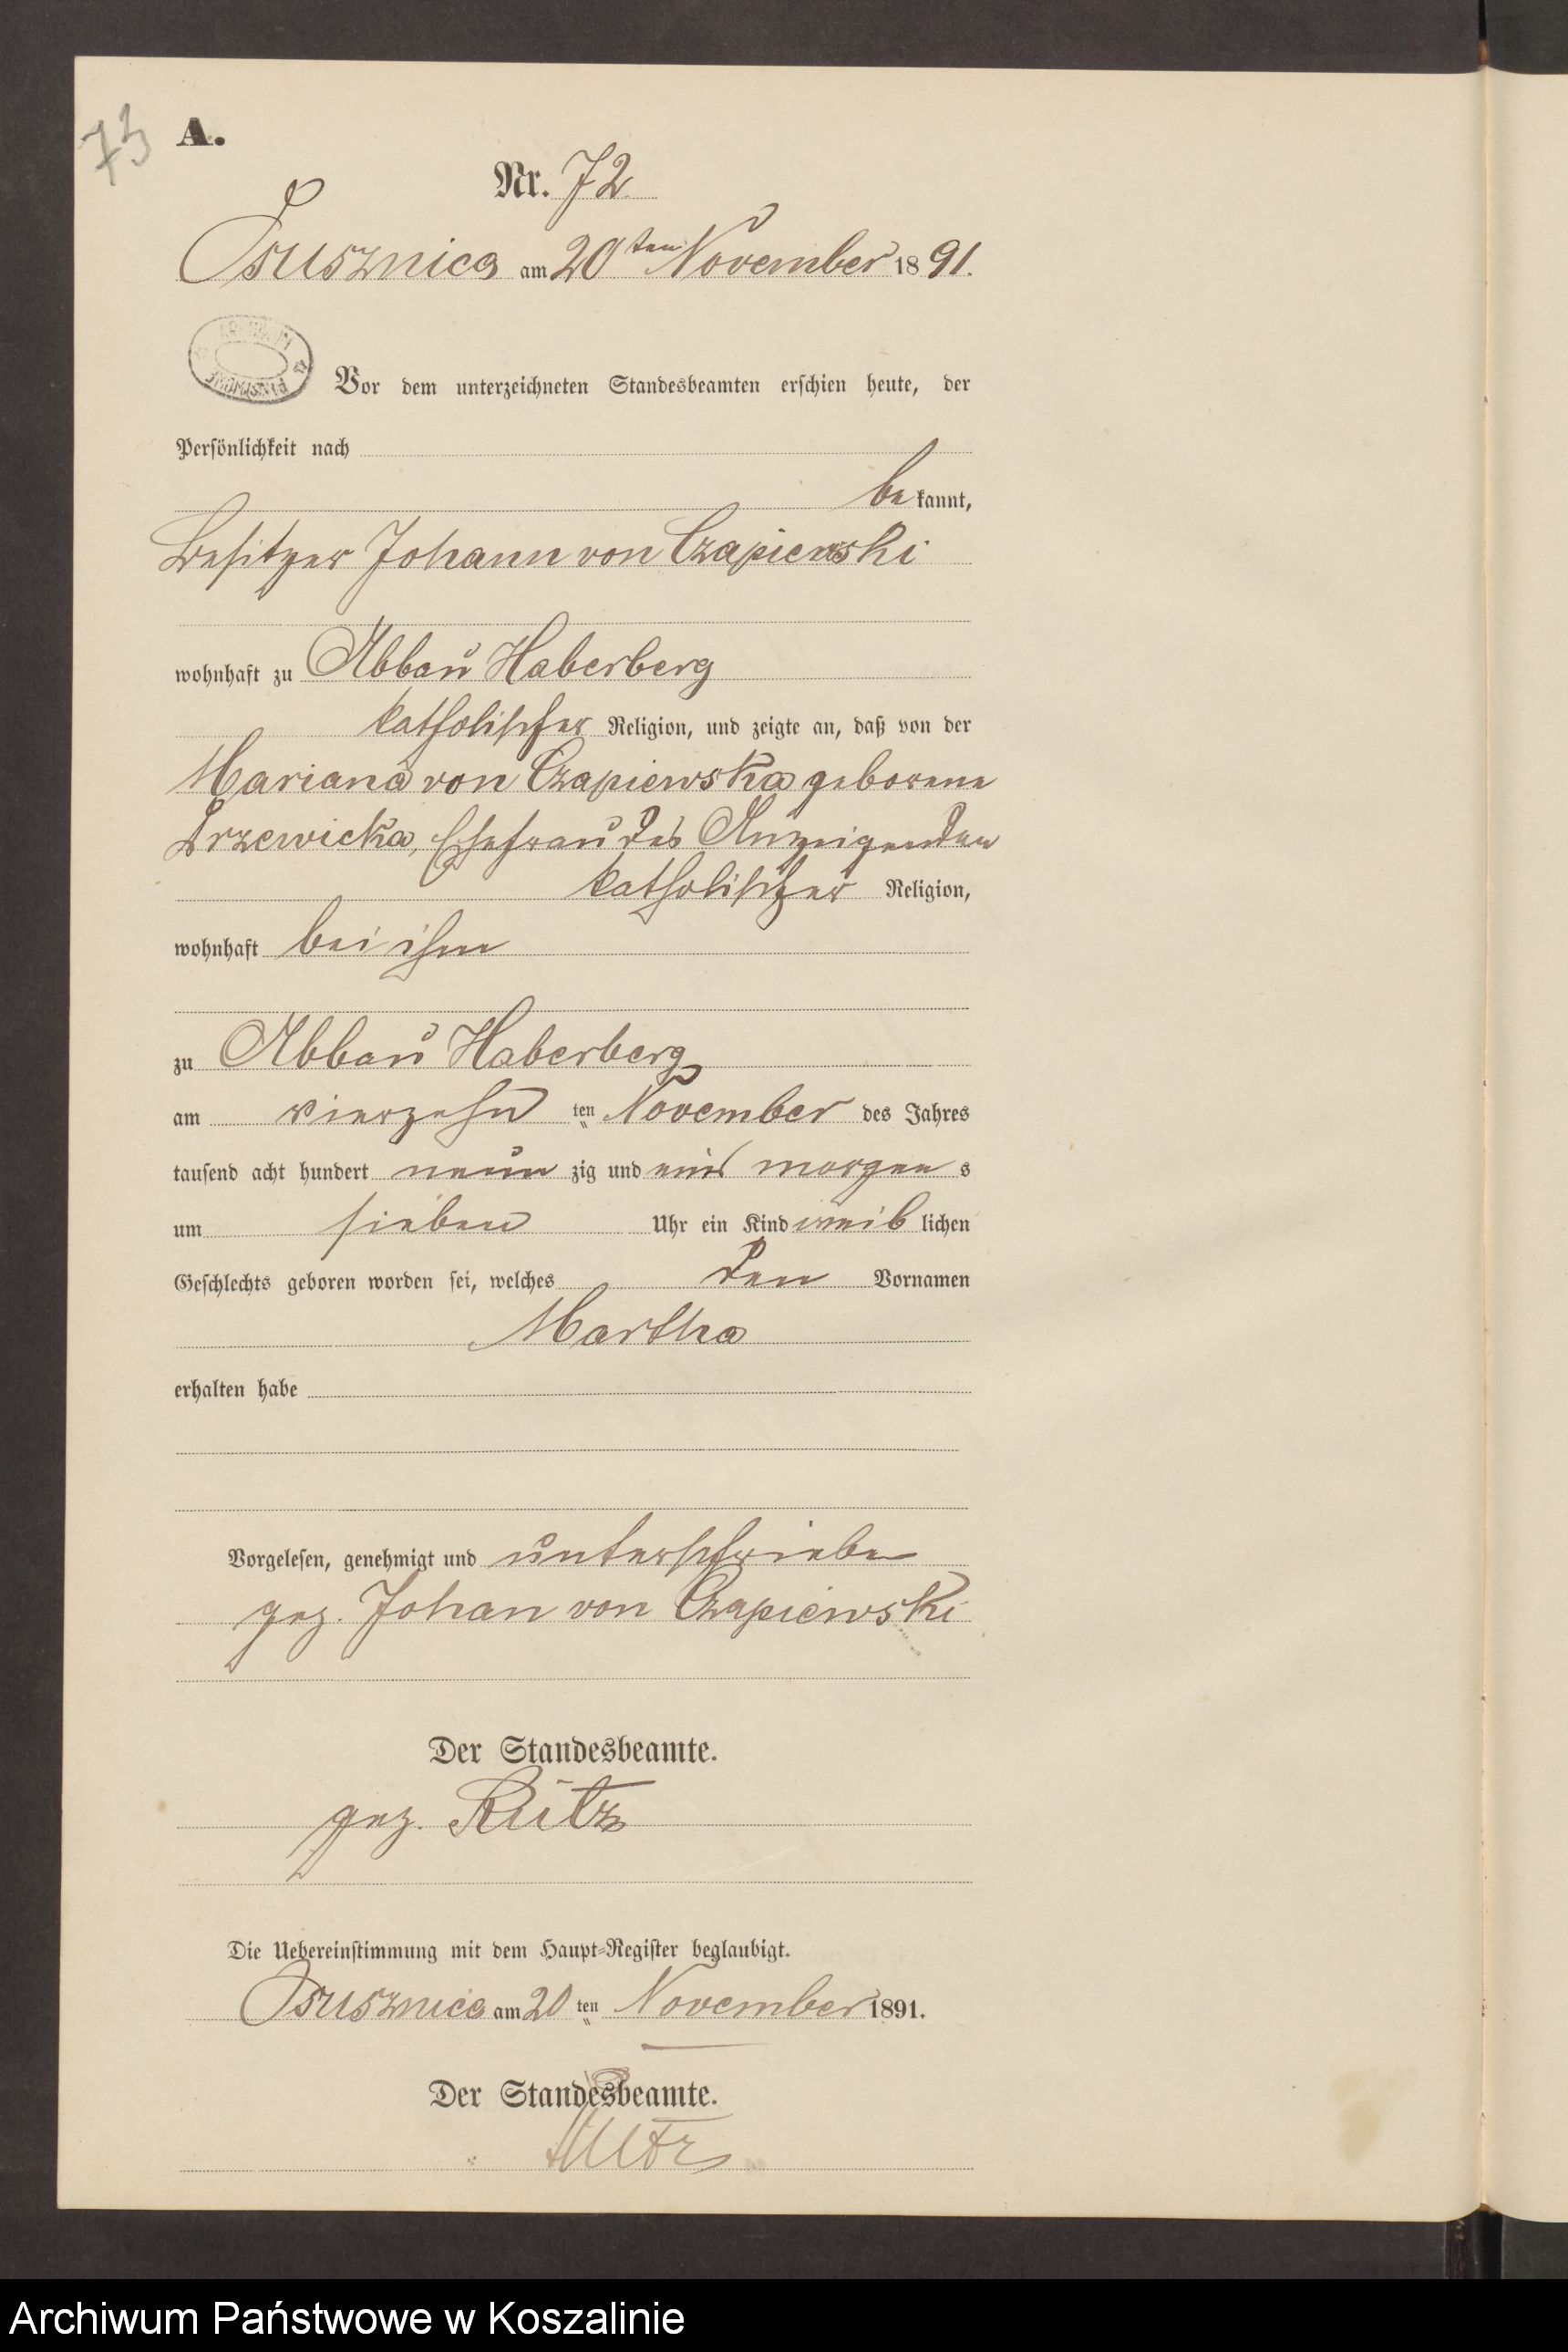 73
A.
Nr. 72
Osusznica am 20ten November 1891.
Vor dem unterzeichneten Standesbeamten erschien heute, der
Persönlichkeit nach
bekannt,
Besitzer Johann von Czapiewski
wohnhaft zu Abbau Haberberg
katholischer Religion, und zeigte an, daß von der
Mariana von Czapiewska geborene
Trzewicka, Ehefrau des Anzeigenden
katholischer Religion,
wohnhaft bei ihm
zu Abbau Haberberg
am vierzehnten November des Jahres
tausend acht hundert neunzig und eins morgens
um sieben Uhr ein Kind weiblichen
Geschlechts geboren worden sei, welches den Vornamen
Martha
erhalten habe
Vorgelesen, genehmigt und unterschrieben
gez. Johan von Czapiewski
Der Standesbeamte.
gez. Rütz
Die Uebereinstimmung mit dem Haupt-Register beglaubigt.
Osusznica am 20ten November 1891.
Der Standesbeamte.
Rütz
Archiwum Państwowe w Koszalinie